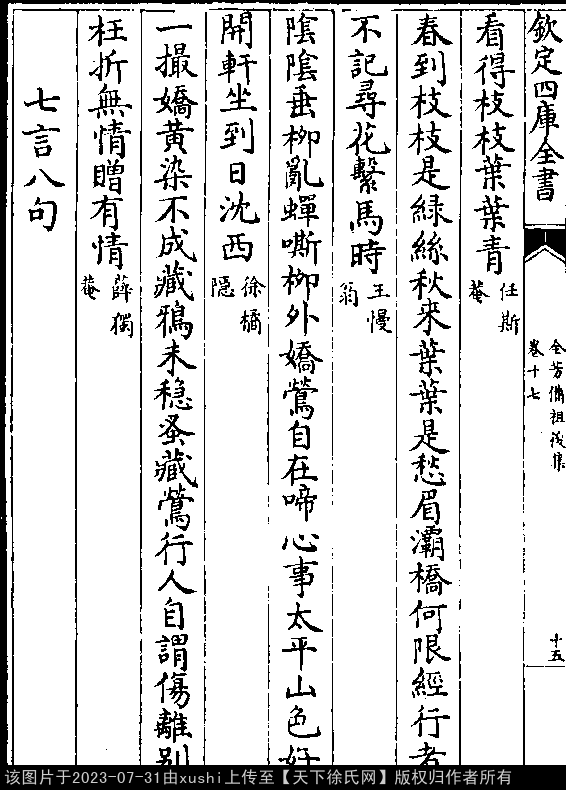 欽定四庫全書
全芳備祖後集
卷十七
十五
看得枝枝葉葉青
任斯
菴
春到枝枝是緑絲秋來葉葉是愁眉灞橋何限經行者
不記尋花繫馬時
王慢
翁
隂隂垂栁亂蟬嘶栁外嬌鶯自在啼心事太平山色好
開軒坐到日沈西
徐橘
隠
一撮嬌黄染不成藏鴉未穏蚤藏鶯行人自謂傷離别
枉折無情贈有情
薛獨
菴
七言八句
该图片于2023-07-31由xushi上传至【天下徐氏网】版权归作者所有